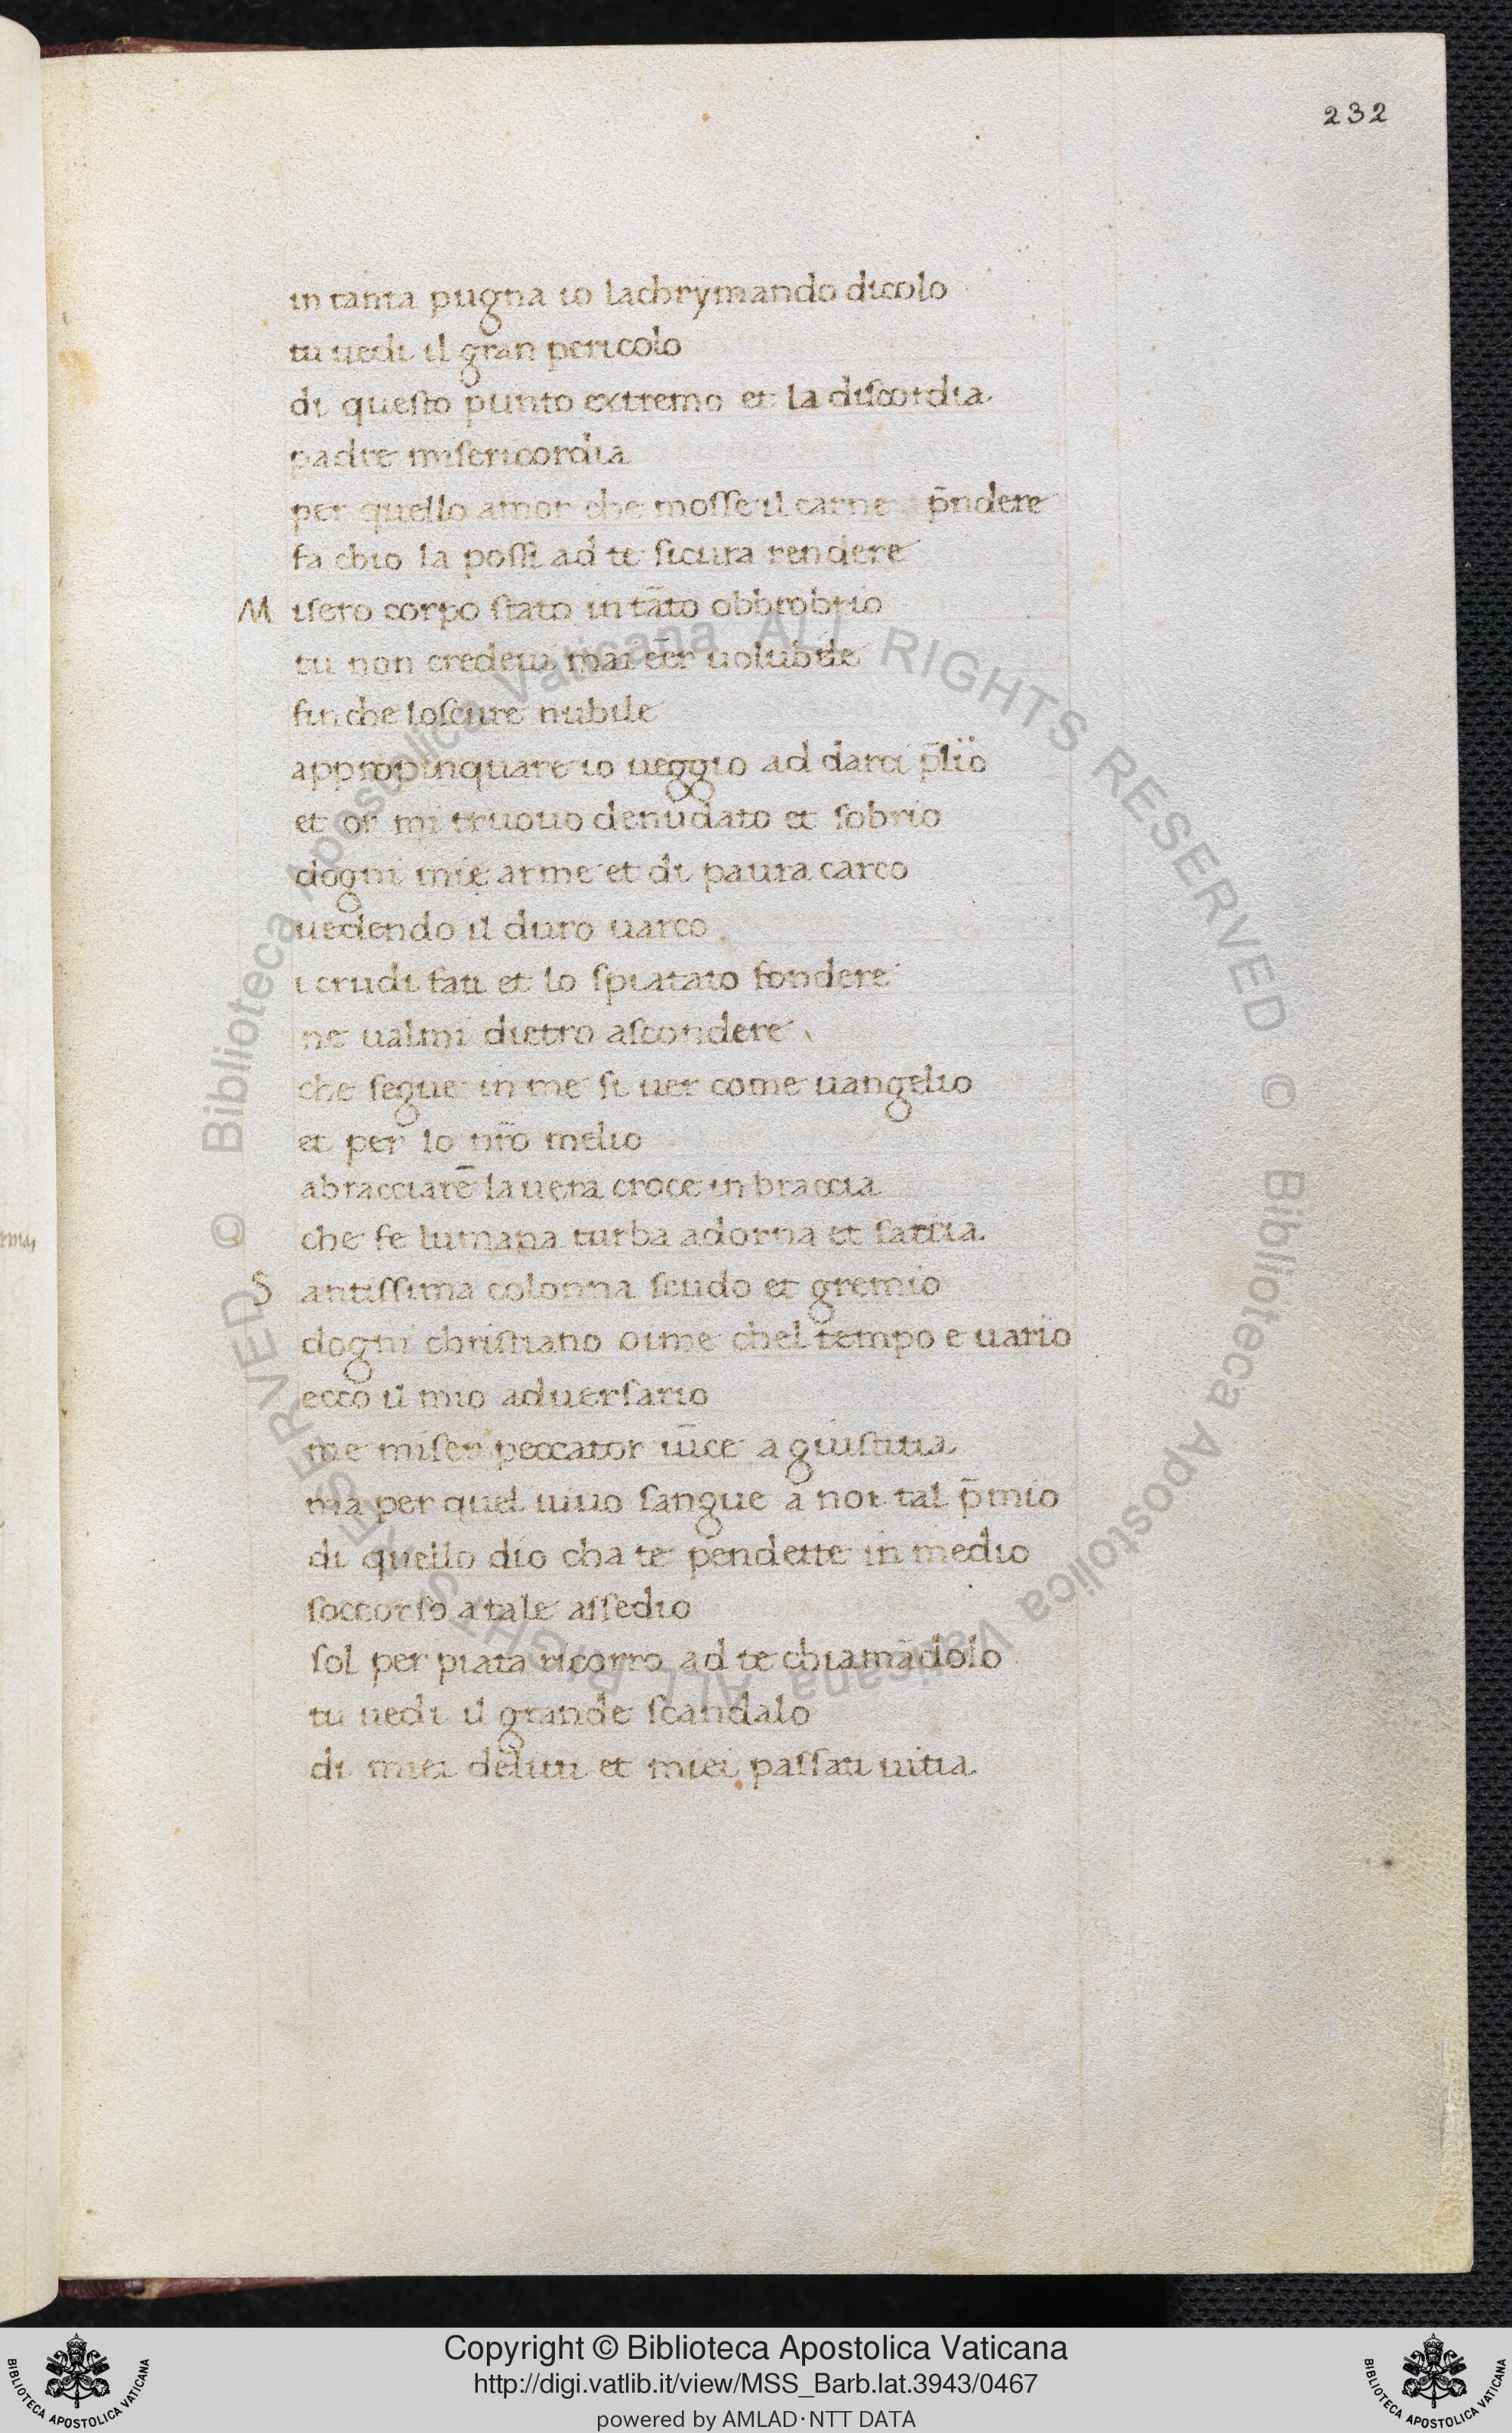 232
in tanta pugna io lachrymando dicolo
tu uedi il gran pericolo
di queſto punto extremo et la diſcordia
padre miſericordia
per quello amor che moſſe il carne p̄ndere
fa chio la poſſi ad te ſicura rendere
M iſero corpo ſtato in tāto obbrobrio
tu non credeui mai eēr uolubile
fin che loſcure nubile
appropinquare io ueggio ad darci p̄lio
et or mi truouo denudato et ſobrio
dogni mie arme et di paura carco
uedendo il duro uarco
i crudi fati et lo ſpiatato fondere
ne ualmi dietro aſcondere
che ſegue in me ſi uer come uangelio
et per lo nr̄o melio
abracciarē la uera croce in braccia
che fe lumana turba adorna et ſaccia
S antiſſima colonna ſcudo et gremio
dogni chriſtiano oime chel tempo e uario
ecco il mio aduerſario
me miſer peccator uīce a giuſtitia
ma per quel uiuo ſangue a noi tal p̄mio
di quello dio cha te pendette in medio
ſoccorſo a tale aſſedio
ſol per piata ricorro ad te chiamādolo
tu uedi il grande ſcandalo
di miei delitti et miei paſſati uitia
© Biblioteca Apostolica Vaticana ALL RIGHTS RESERVED © Biblioteca Apostolica Vaticana ALL RIGHTS RESERVED
Copyright © Biblioteca Apostolica Vaticana
http://digi.vatlib.it/view/MSS_Barb.lat.3943/0467
powered by AMLAD·NTT DATA
BIBLIOTECA APOSTOLICA VATICANA
BIBLIOTECA APOSTOLICA VATICANA